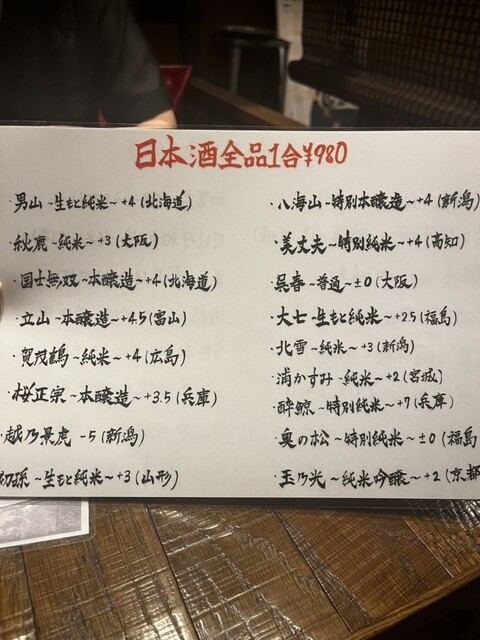 日本酒全品1合¥980
・男山 ~生もと純米~ +4 (北海道)
・秋鹿 ~純米~ +3 (大阪)
・国士無双 ~本醸造~ +4 (北海道)
・立山 ~本醸造~ +4.5 (富山)
・賀茂鶴 ~純米~ +4 (広島)
・桜正宗 ~本醸造~ +3.5 (兵庫)
・越乃景虎 -5 (新潟)
初孫 ~生もと純米~ +3 (山形)
・八海山 ~特別本醸造~ +4 (新潟)
・美丈夫 ~特別純米~ +4 (高知)
・呉春 ~普通~ ±0 (大阪)
・大七 ~生もと純米~ +2.5 (福島)
・北雪 ~純米~ +3 (新潟)
・浦かすみ ~純米~ +2 (宮城)
・酔鯨 ~特別純米~ +7 (兵庫)
・奥の松 ~特別純米~ ±0 (福島
・玉乃光 ~純米吟醸~ +2 (京都